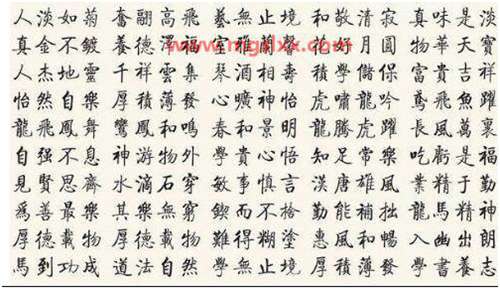 人淡如菊 奮翩高飛 藝無止境 和敬清寂 真味是淡
真金不鍍 養德 福 室雅蘭馨 花好月圓 物華天寶
人杰地靈 千祥雲集 琴酒 壽 積學儲保 富貴吉祥
怡然自樂 厚積薄發 心曠神怡 虎嘯龍吟 鳶飛魚躍
龍飛鳳舞 鸞鳳和鳴 春和景明 龍騰虎躍 長風萬裏
自强不息 神游物外 學貴心悟 知足常樂 吃虧是福
見賢思齊 水滴石穿 敏事慎言 漢唐雄風 業精于勤
爲善最樂 其樂無窮 鍥而不捨 勤能補拙 龍馬精神
厚德載物 厚德載物 難得糊塗 惠風和暢 入幽出朗
馬到功成 道法自然 學無止境 厚積薄發 學書養志